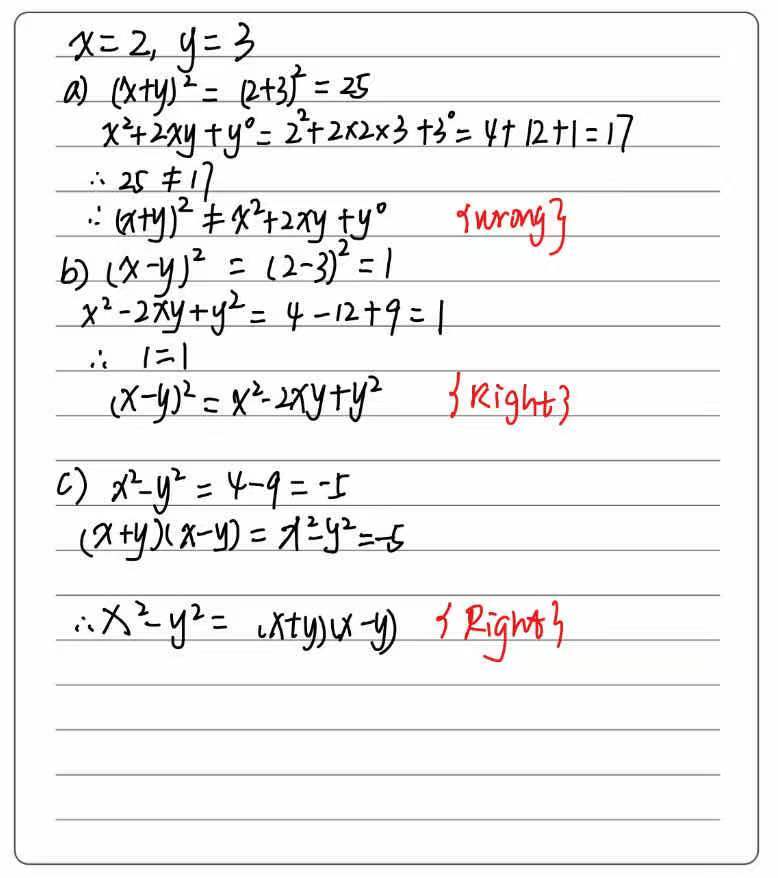 x = 2, y = 3
a) (x+y)² = (2+3)² = 25
x²+2xy+y⁰ = 2²+2×2×3+3⁰ = 4+12+1 = 17
∴ 25 ≠ 17
∴ (x+y)² ≠ x²+2xy+y⁰ {wrong}
b) (x-y)² = (2-3)² = 1
x²-2xy+y² = 4-12+9 = 1
∴ 1=1
(x-y)² = x²-2xy+y² {Right}
c) x²-y² = 4-9 = -5
(x+y)(x-y) = x²-y² = -5
∴ x²-y² = (x+y)(x-y) {Right}